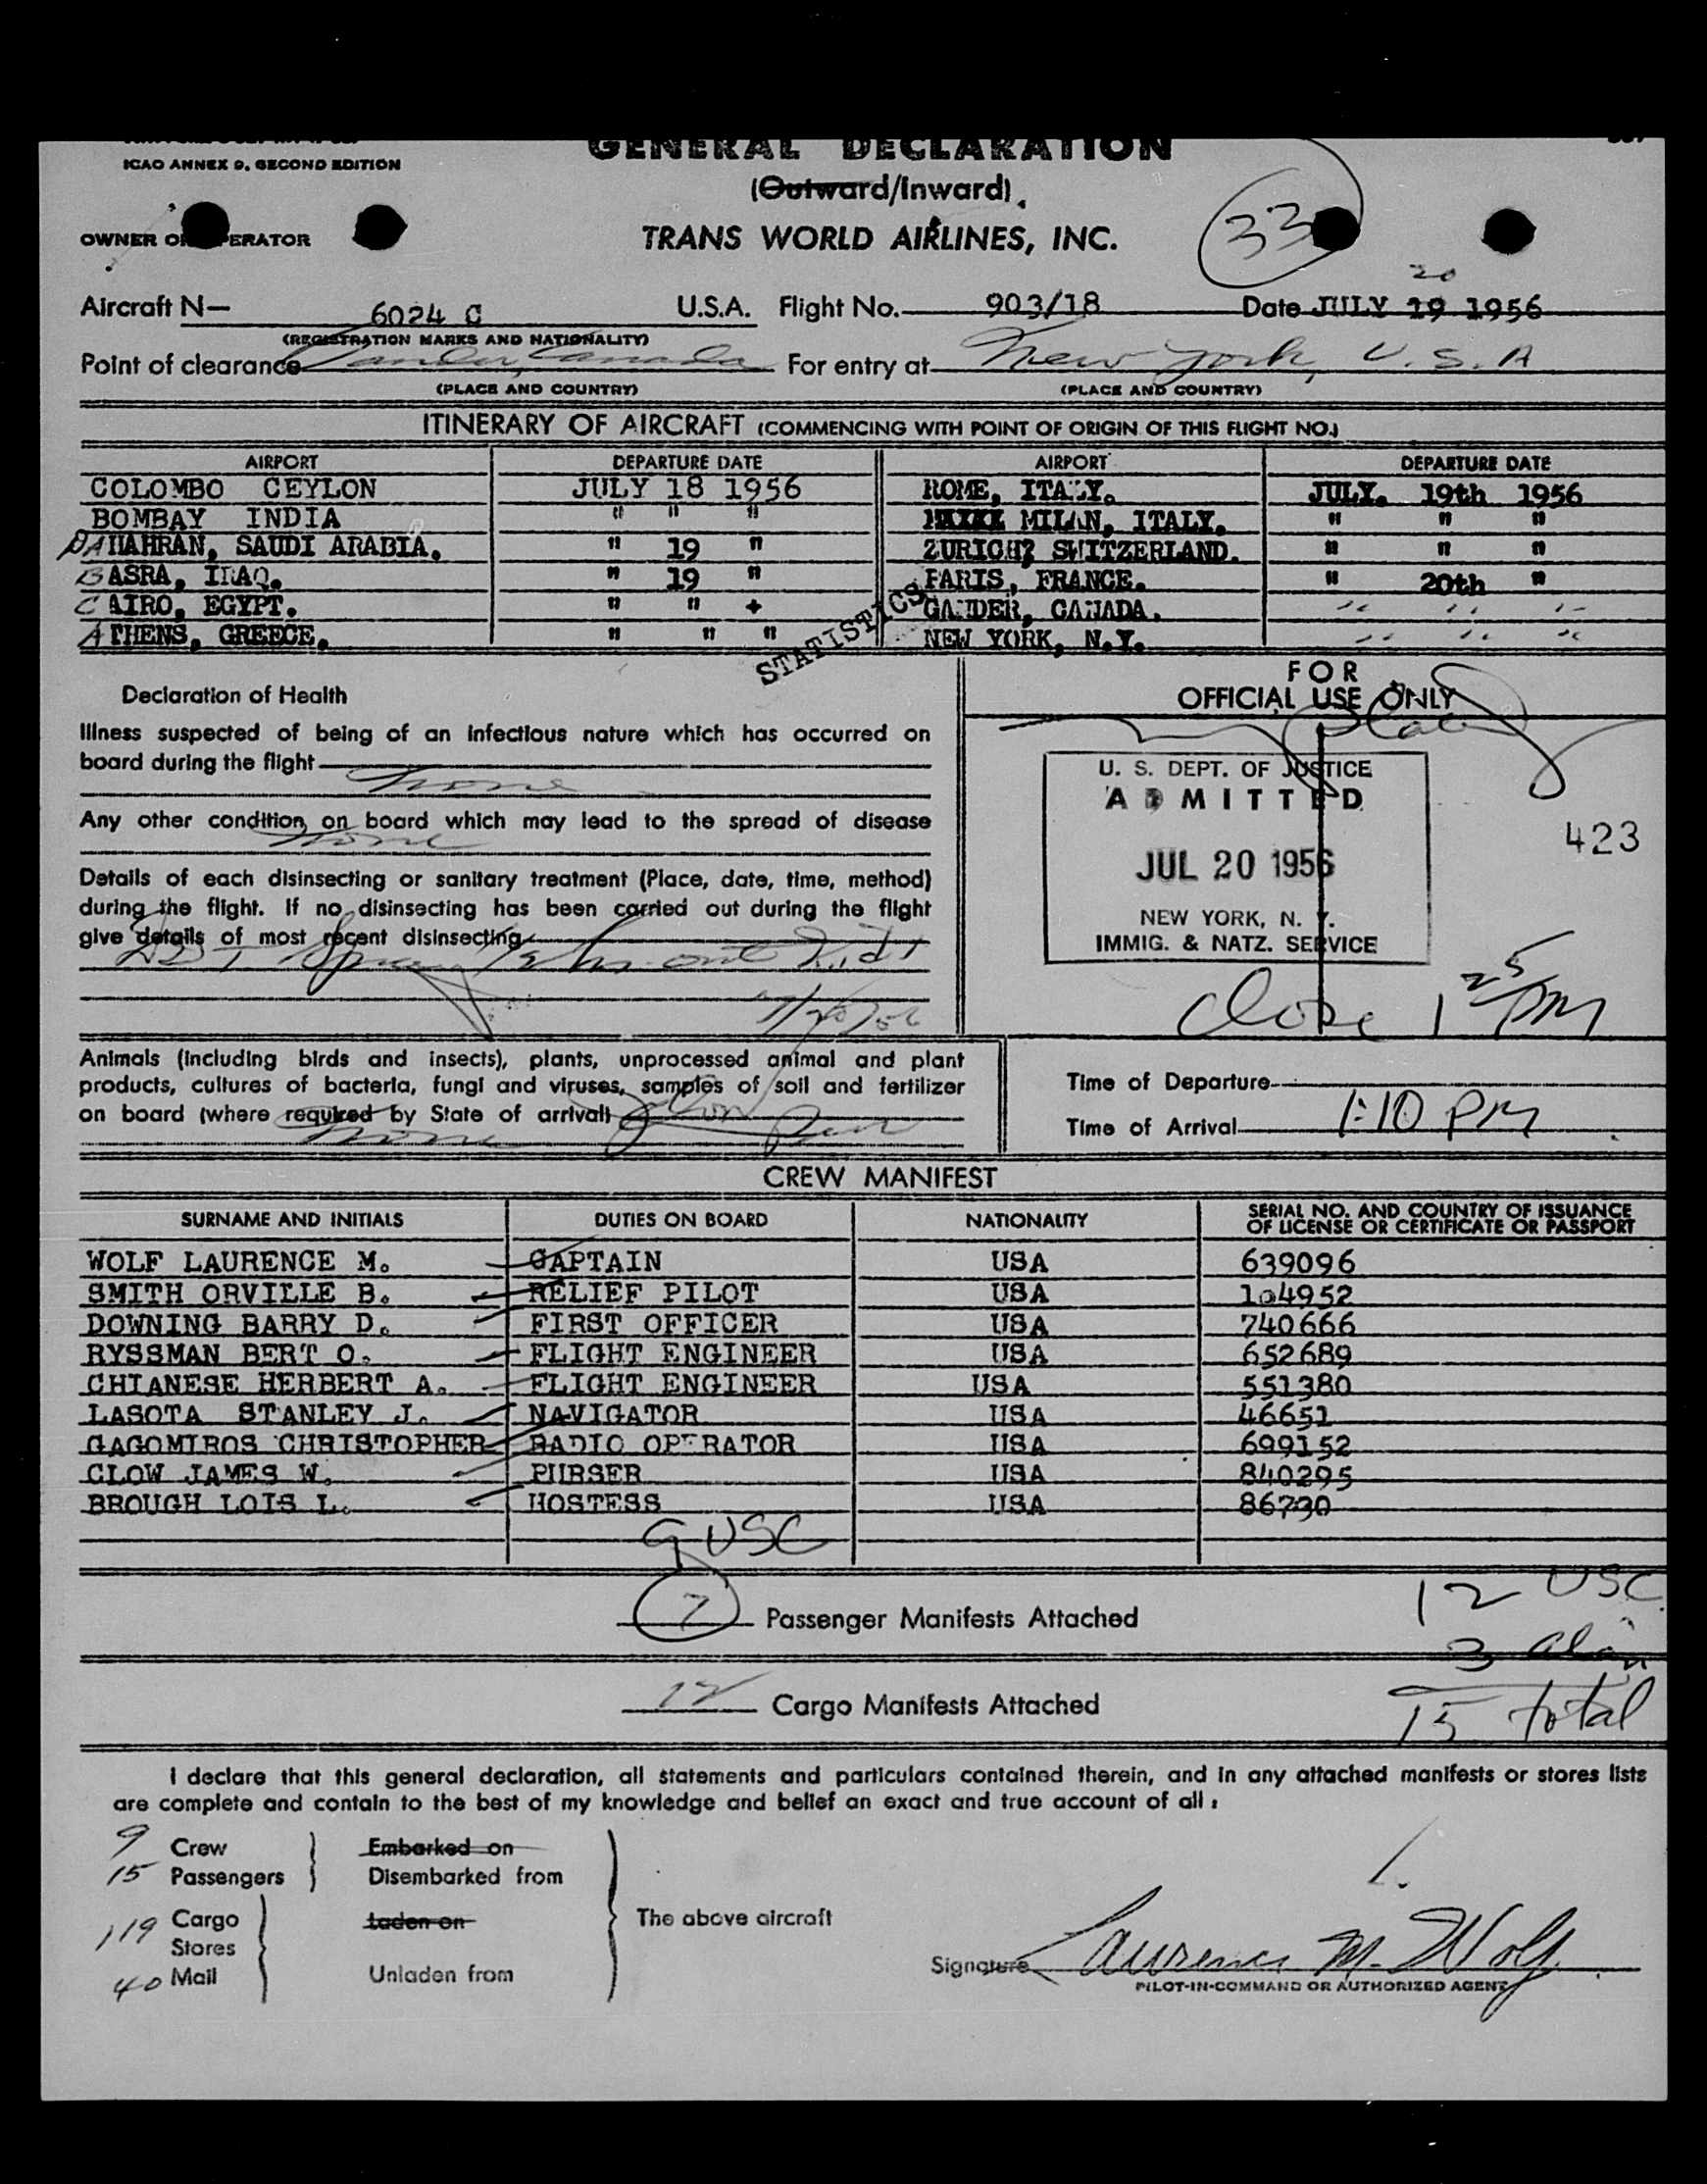 ICAO ANNEX 9, SECOND EDITION
GENERAL DECLARATION
(Outward/Inward)
33
OWNER OR OPERATOR
TRANS WORLD AIRLINES, INC.
20
Aircraft N— 6024 C U.S.A. Flight No. 903/18 Date JULY 19 1956
(REGISTRATION MARKS AND NATIONALITY)
Point of clearance Gander, Canada For entry at New York, U.S.A
(PLACE AND COUNTRY) (PLACE AND COUNTRY)
ITINERARY OF AIRCRAFT (COMMENCING WITH POINT OF ORIGIN OF THIS FLIGHT NO.)
AIRPORT DEPARTURE DATE AIRPORT DEPARTURE DATE
COLOMBO CEYLON JULY 18 1956 ROME, ITALY. JULY. 19th 1956
BOMBAY INDIA " " " MILAN, ITALY. " " "
DAHAHRAN, SAUDI ARABIA. " 19 " ZURICH? SWITZERLAND. " " "
BASRA, IRAQ. " 19 " PARIS, FRANCE. " 20th "
CAIRO, EGYPT. " " + GANDER, CANADA. " " "
ATHENS, GREECE. " " " NEW YORK, N.Y. " " "
STATISTICS
Declaration of Health
Illness suspected of being of an infectious nature which has occurred on
board during the flight none
Any other condition on board which may lead to the spread of disease
none
Details of each disinsecting or sanitary treatment (Place, date, time, method)
during the flight. If no disinsecting has been carried out during the flight
give details of most recent disinsecting
DDT Spray
7/20/56
FOR
OFFICIAL USE ONLY
U. S. DEPT. OF JUSTICE
ADMITTED
JUL 20 1956
NEW YORK, N. Y.
IMMIG. & NATZ. SERVICE
423
Close 1 25 PM
Animals (including birds and insects), plants, unprocessed animal and plant
products, cultures of bacteria, fungi and viruses, samples of soil and fertilizer
on board (where required by State of arrival)
none
Time of Departure
Time of Arrival 1:10 PM
CREW MANIFEST
SURNAME AND INITIALS DUTIES ON BOARD NATIONALITY SERIAL NO. AND COUNTRY OF ISSUANCE
OF LICENSE OR CERTIFICATE OR PASSPORT
WOLF LAURENCE M. CAPTAIN USA 639096
SMITH ORVILLE B. RELIEF PILOT USA 104952
DOWNING BARRY D. FIRST OFFICER USA 740666
RYSSMAN BERT O. FLIGHT ENGINEER USA 652689
CHIANESE HERBERT A. FLIGHT ENGINEER USA 551380
LASOTA STANLEY J. NAVIGATOR USA 46651
GAGOMIROS CHRISTOPHER RADIO OPERATOR USA 699152
CLOW JAMES W. PURSER USA 840295
BROUGH LOIS L. HOSTESS USA 86730
9 USC
7 Passenger Manifests Attached
12 USC
3 alien
12 Cargo Manifests Attached
15 total
I declare that this general declaration, all statements and particulars contained therein, and in any attached manifests or stores lists
are complete and contain to the best of my knowledge and belief an exact and true account of all:
9 Crew Embarked on
15 Passengers Disembarked from
119 Cargo Laden on The above aircraft
Stores
40 Mail Unladen from
Signature Laurence M. Wolf
PILOT-IN-COMMAND OR AUTHORIZED AGENT